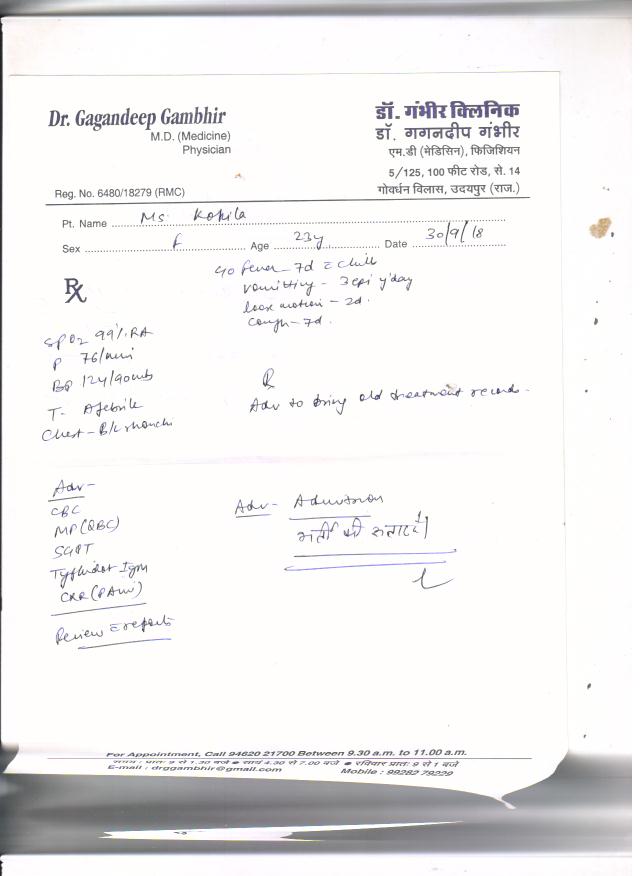 Dr. Gagandeep Gambhir
M.D. (Medicine)
Physician
Reg. No. 6480/18279 (RMC)
डॉ. गंभीर क्लिनिक
डॉ. गगनदीप गंभीर
एम.डी (मेडिसिन), फिजिशियन
5/125, 100 फीट रोड, से. 14
गोवर्धन विलास, उदयपुर (राज.)
Pt. Name Ms. Kokila
Sex F Age 23y Date 30/9/18
Rx
c/o Fever - 7d c̄ chill
vomitting - 3 epi /day
loose motion - 2d.
Cough - 7d.
SpO2 99% RA
P 76/min
BP 124/90
T - Afebrile
Chest - B/L rhonchi
Rx
Adv to bring old treatment records.
Adv -
CBC
MP (QBC)
SGPT
Typhidot Igm
CXR (PA)
Review c̄ reports
Adv - Admission
भर्ती की सलाह दी
For Appointment, Call 94620 21700 Between 9.30 a.m. to 11.00 a.m.
समय : प्रातः 9 से 1.30 बजे ● सायं 4.30 से 7.00 बजे ● रविवार प्रातः 9 से 1 बजे
E-mail : drggambhir@gmail.com Mobile : 99282 79229